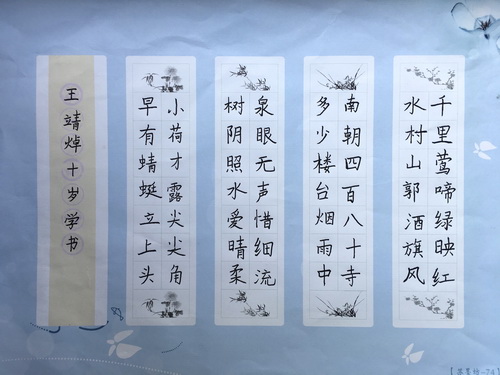 千里莺啼绿映红
水村山郭酒旗风
南朝四百八十寺
多少楼台烟雨中
泉眼无声惜细流
树阴照水爱晴柔
小荷才露尖尖角
早有蜻蜓立上头
王靖焯十岁学书